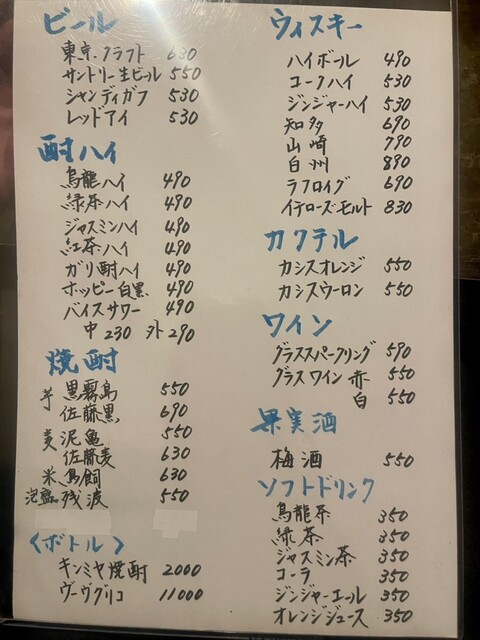 ビール
東京クラフト 630
サントリー生ビール 550
シャンディガフ 530
レッドアイ 530
酎ハイ
烏龍ハイ 490
緑茶ハイ 490
ジャスミンハイ 490
紅茶ハイ 490
ガリ酎ハイ 490
ホッピー白黒 490
バイスサワー 490
中230 外290
焼酎
芋 黒霧島 550
佐藤黒 690
麦 泥亀 550
佐藤麦 630
米 鳥飼 630
泡盛 残波 550
<ボトル>
キンミヤ焼酎 2000
ヴーヴグリコ 11000
ウィスキー
ハイボール 490
コークハイ 530
ジンジャーハイ 530
知多 690
山崎 790
白州 890
ラフロイグ 690
イチローズ・モルト 830
カクテル
カシスオレンジ 550
カシスウーロン 550
ワイン
グラススパークリング 590
グラスワイン 赤 550
白 550
果実酒
梅酒 550
ソフトドリンク
烏龍茶 350
緑茶 350
ジャスミン茶 350
コーラ 350
ジンジャーエール 350
オレンジジュース 350